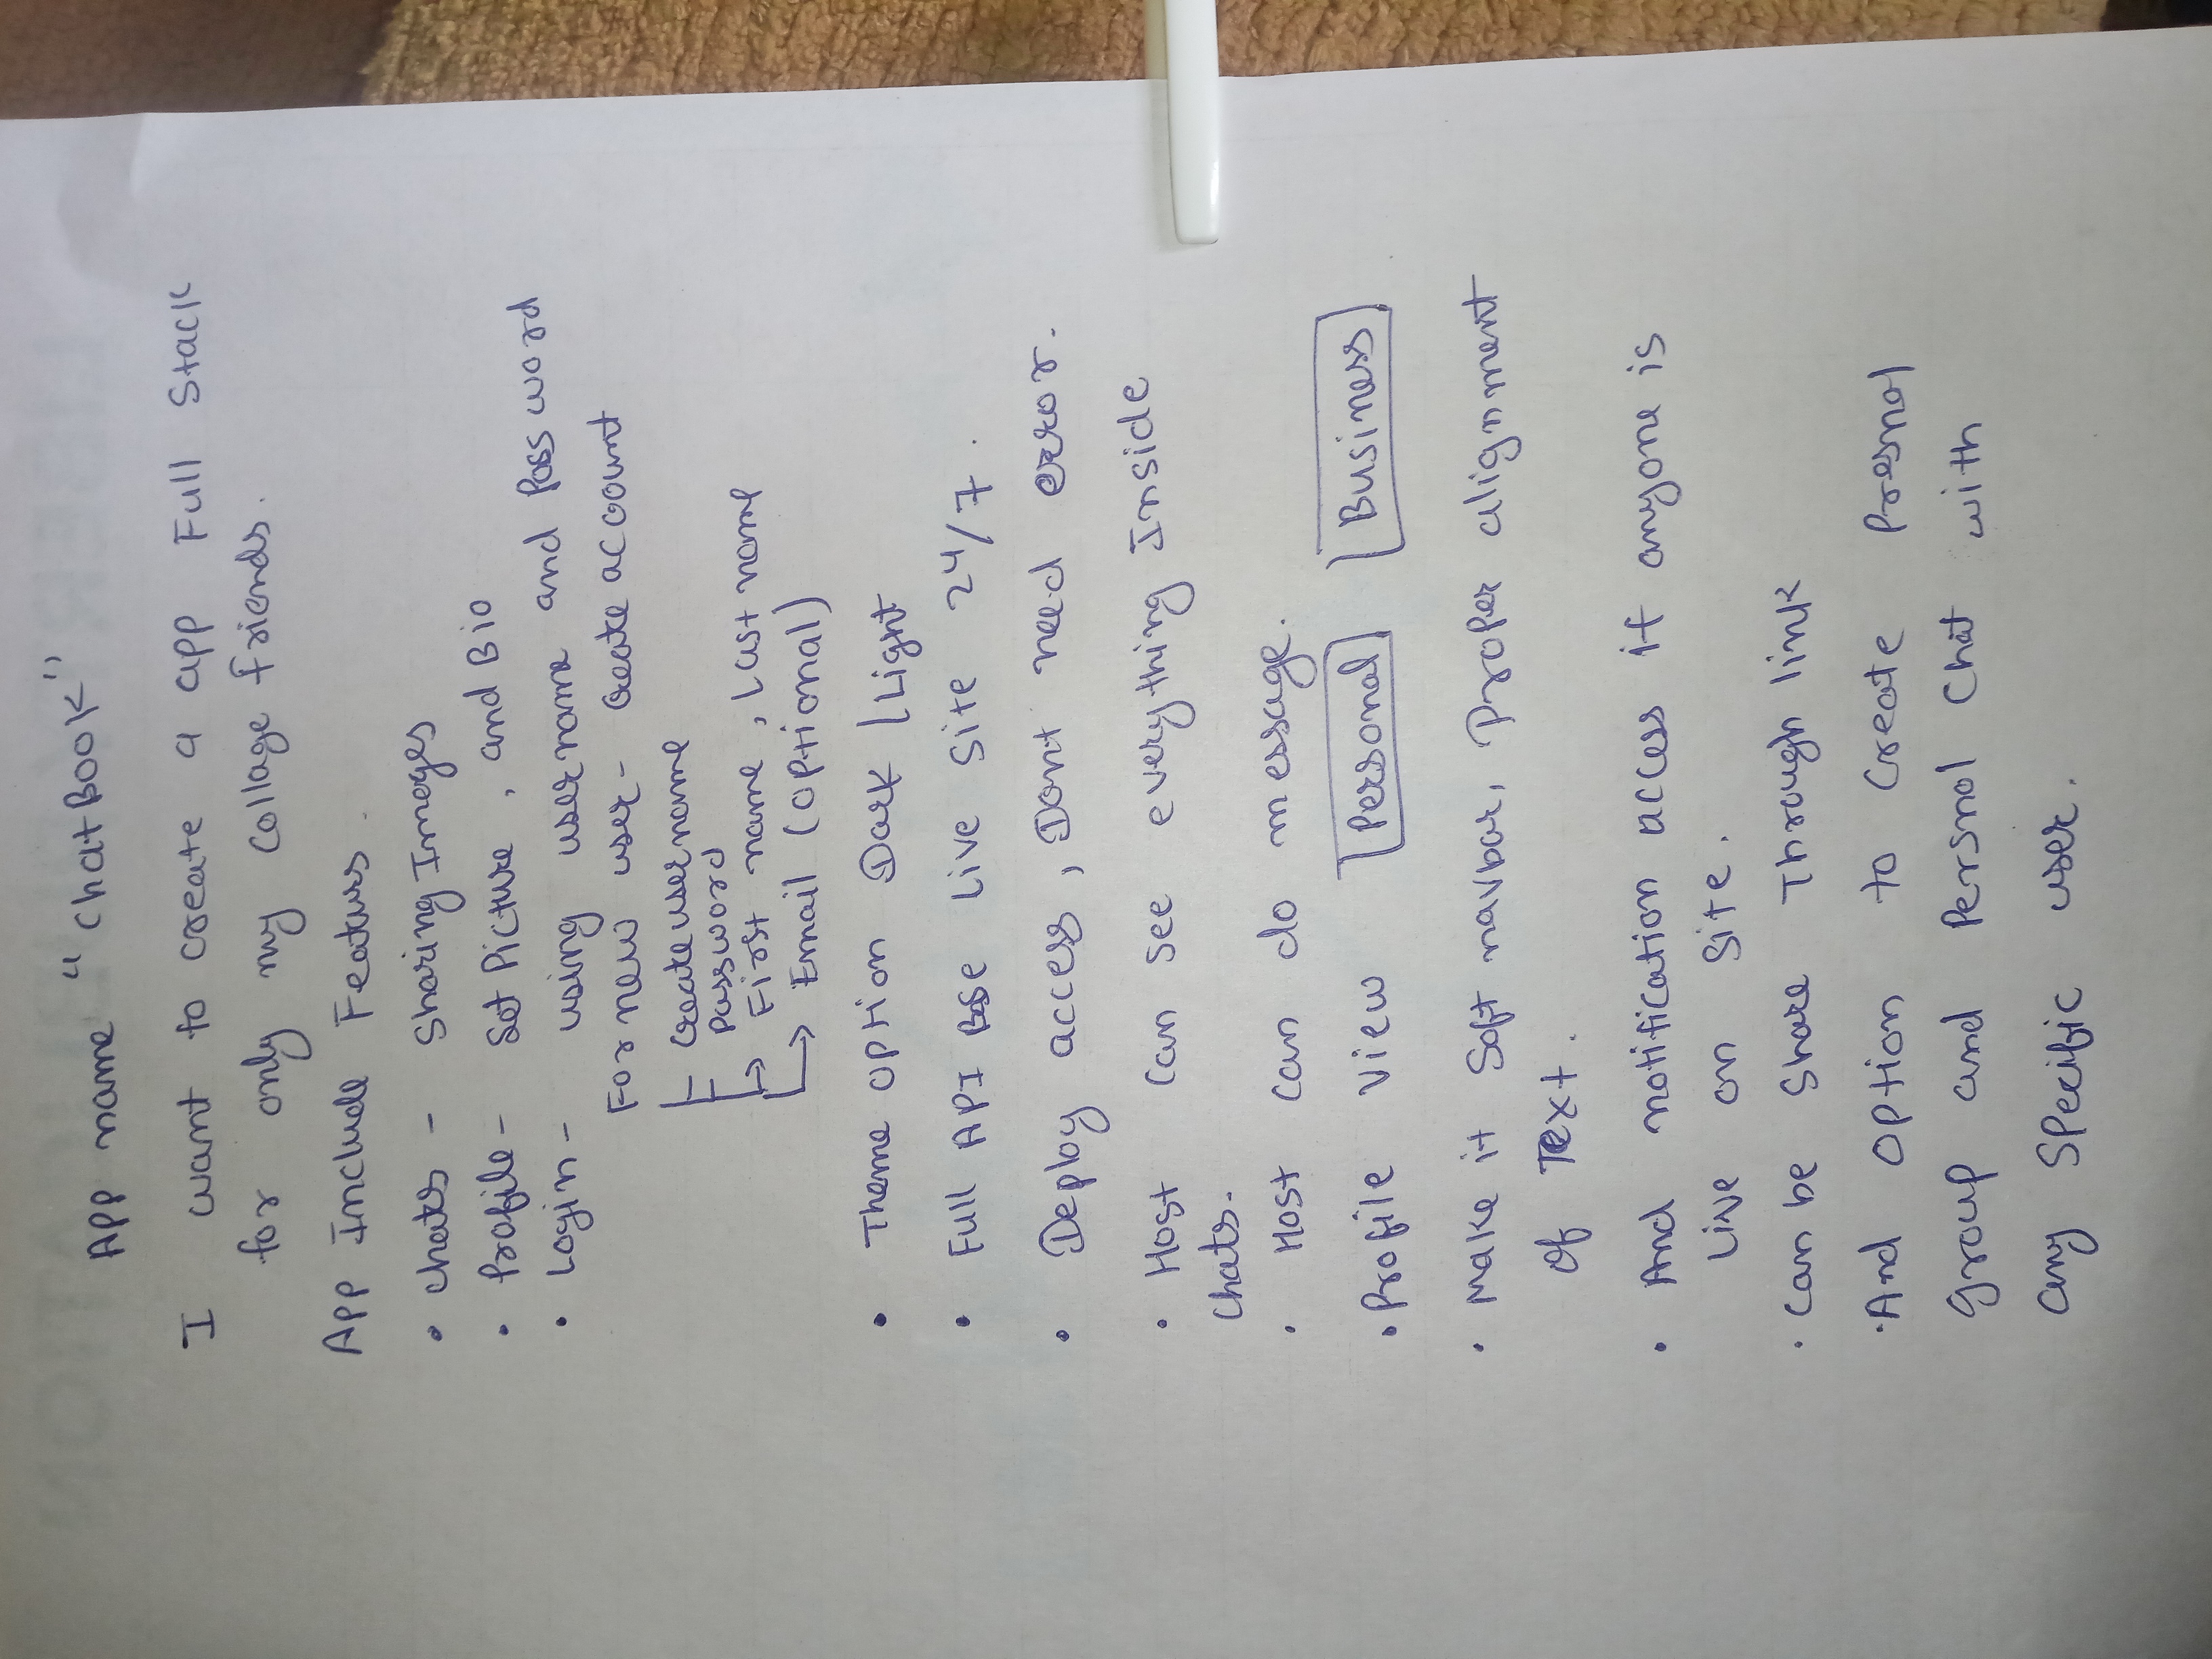 App name "ChatBook"
I want to create a app Full Stack
for only my collage friends.
App Include Featurs.
• chats - Sharing Images
• Profile - Set Picture, and Bio
• Login - using username and Password
For new user - create account
create username
password
First name, Last name
Email (optional)
• Theme option Dark/Light
• Full API Base Live Site 24/7.
• Deploy access, Dont need error.
• Host can see everything Inside
chats.
• Host can do message.
• Profile view Personal Business
• Make it Soft navbar, Proper alignment
of Text.
• And notification access if anyone is
Live on Site.
• Can be Share Through link
• And option to create Presnol
group and Persnol Chat with
any Specific user.